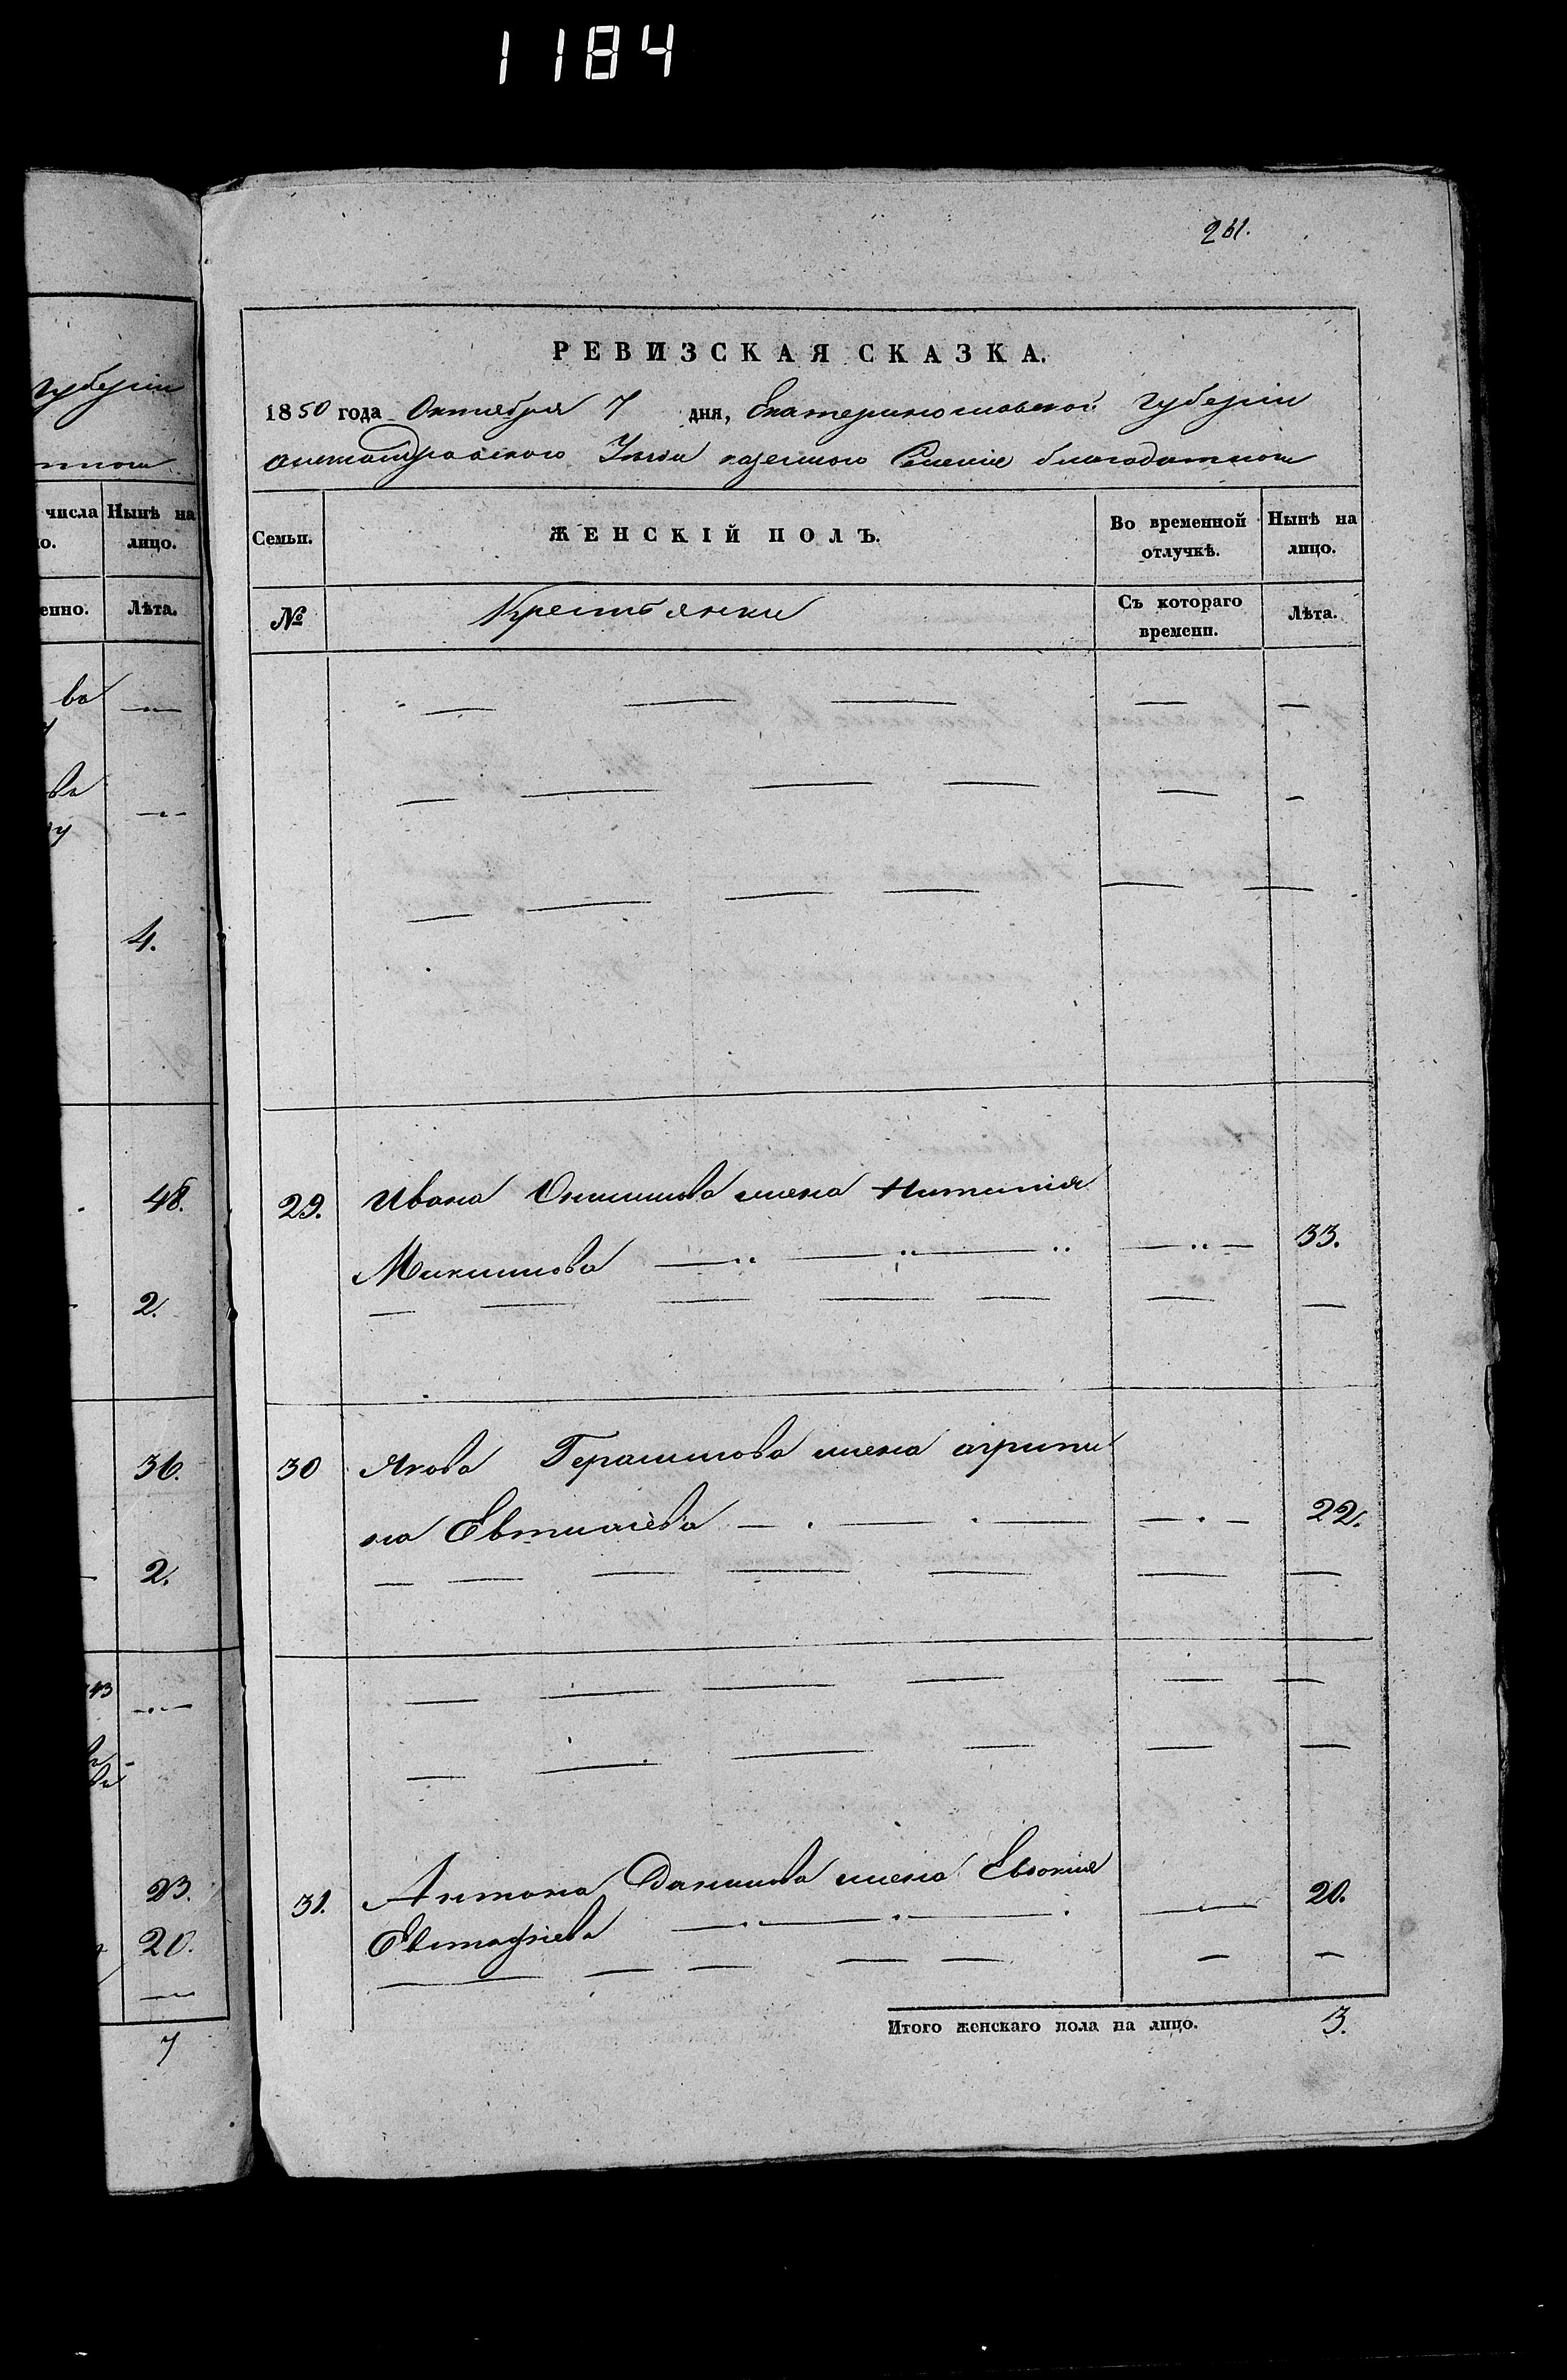 1184
261.
губерніи
числа Нынѣ на
лицо.
Лѣта.
4.
48.
2.
36.
2.
23.
20.
7
РЕВИЗСКАЯ СКАЗКА.
1850 года Октября 7 дня, Екатеринославской Губерніи
Александровского Уезда казенного Селенія благодатного
Семьи. ЖЕНСКІЙ ПОЛЪ. Во временной отлучкѣ. Нынѣ на лицо.
№ Крестьянки Съ котораго времени. Лѣта.
29. Ивана жена
33.
30 Якова Герасимова жена агрипи
на Евтихіева 22.
31. Антона Данилова жена Евдокия 20.
Евстафіева
Итого женскаго пола на лицо. 3.